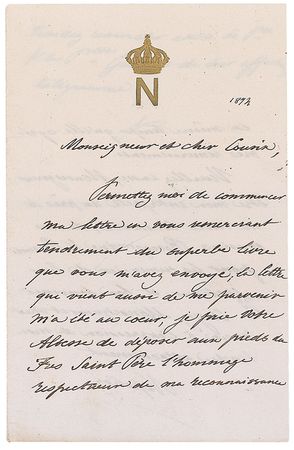 N
1894
Monseigneur et cher Cousin,
Permettez moi de commencer
ma lettre en vous remerciant
tendrement du superbe livre
que vous m'avez envoyé, la lettre
qui vient aussi de me parvenir
m'a été au coeur, je prie votre
Altesse de déposer aux pieds du
Très Saint Père l'hommage
respectueux de ma reconnaissance